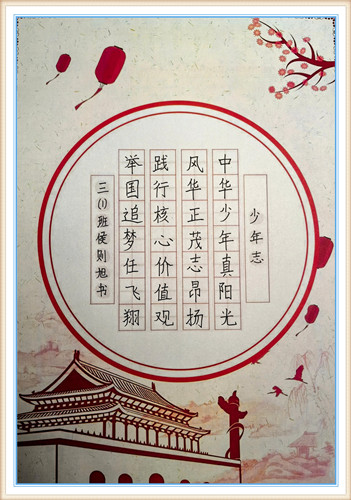 少年志
中华少年真阳光
风华正茂志昂杨
践行核心价值观
举国追梦任飞翔
三(1)班侯则旭书